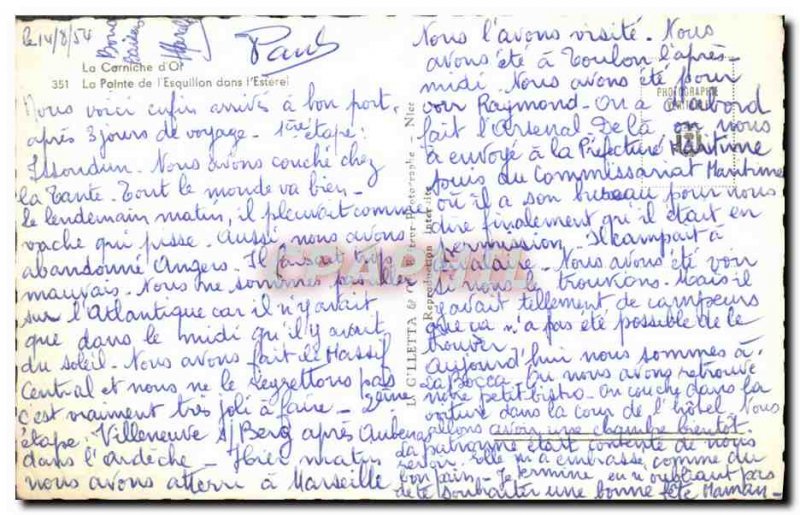 le 14/8/54
Bons
Baisers
Paul
La Corniche d'Or
351 La Pointe de l'Esquillon dans l'Estérel
Nous voici enfin arrivés à bon port,
après 3 jours de voyage - 1ère étape :
Issoudun. Nous avons couché chez
la Tante. Tout le monde va bien -
Le lendemain matin, il pleuvait comme
vache qui pisse. Aussi nous avons
abandonné Angers. Il faisait très
mauvais. Nous ne sommes pas allés
sur l'Atlantique car il n'y avait
que dans le midi qu'il y avait
du soleil. Nous avons fait le Massif
Central et nous ne le regrettons pas
c'est vraiment très joli à faire - 2ème
étape : Villeneuve s/ Berg après Aubenas
dans l'ardèche - Hier matin
nous avons atterri à Marseille
GILLETTA Editeur-Photographe - Nice
Reproduction interdite
PHOTOGRAPHIE
VERITABLE
Nous l'avons visité. Nous
avons été à Toulon l'après-
midi. Nous avons été pour
voir Raymond. On a d'abord
fait l'Arsenal De là on nous
a envoyé à la Préfecture Maritime
puis au Commissariat Maritime
où il a son bureau pour nous
dire finalement qu'il était en
permission. Il campait à
Nous avons été voir
si nous le trouvions. Mais il
y avait tellement de campeurs
que ça n'a pas été possible de le
trouver.
Aujourd'hui nous sommes à
La Bocca. On nous avons retrouvé
notre petit bistro. On couche dans la
voiture dans la cour de l'hôtel. Nous
allons avoir une chambre bientôt.
La patronne était contente de nous
revoir. Elle m'a embrassé comme du
bon pain. - Je termine en n'oubliant pas
de te souhaiter une bonne fête Maman -
CPARAMA